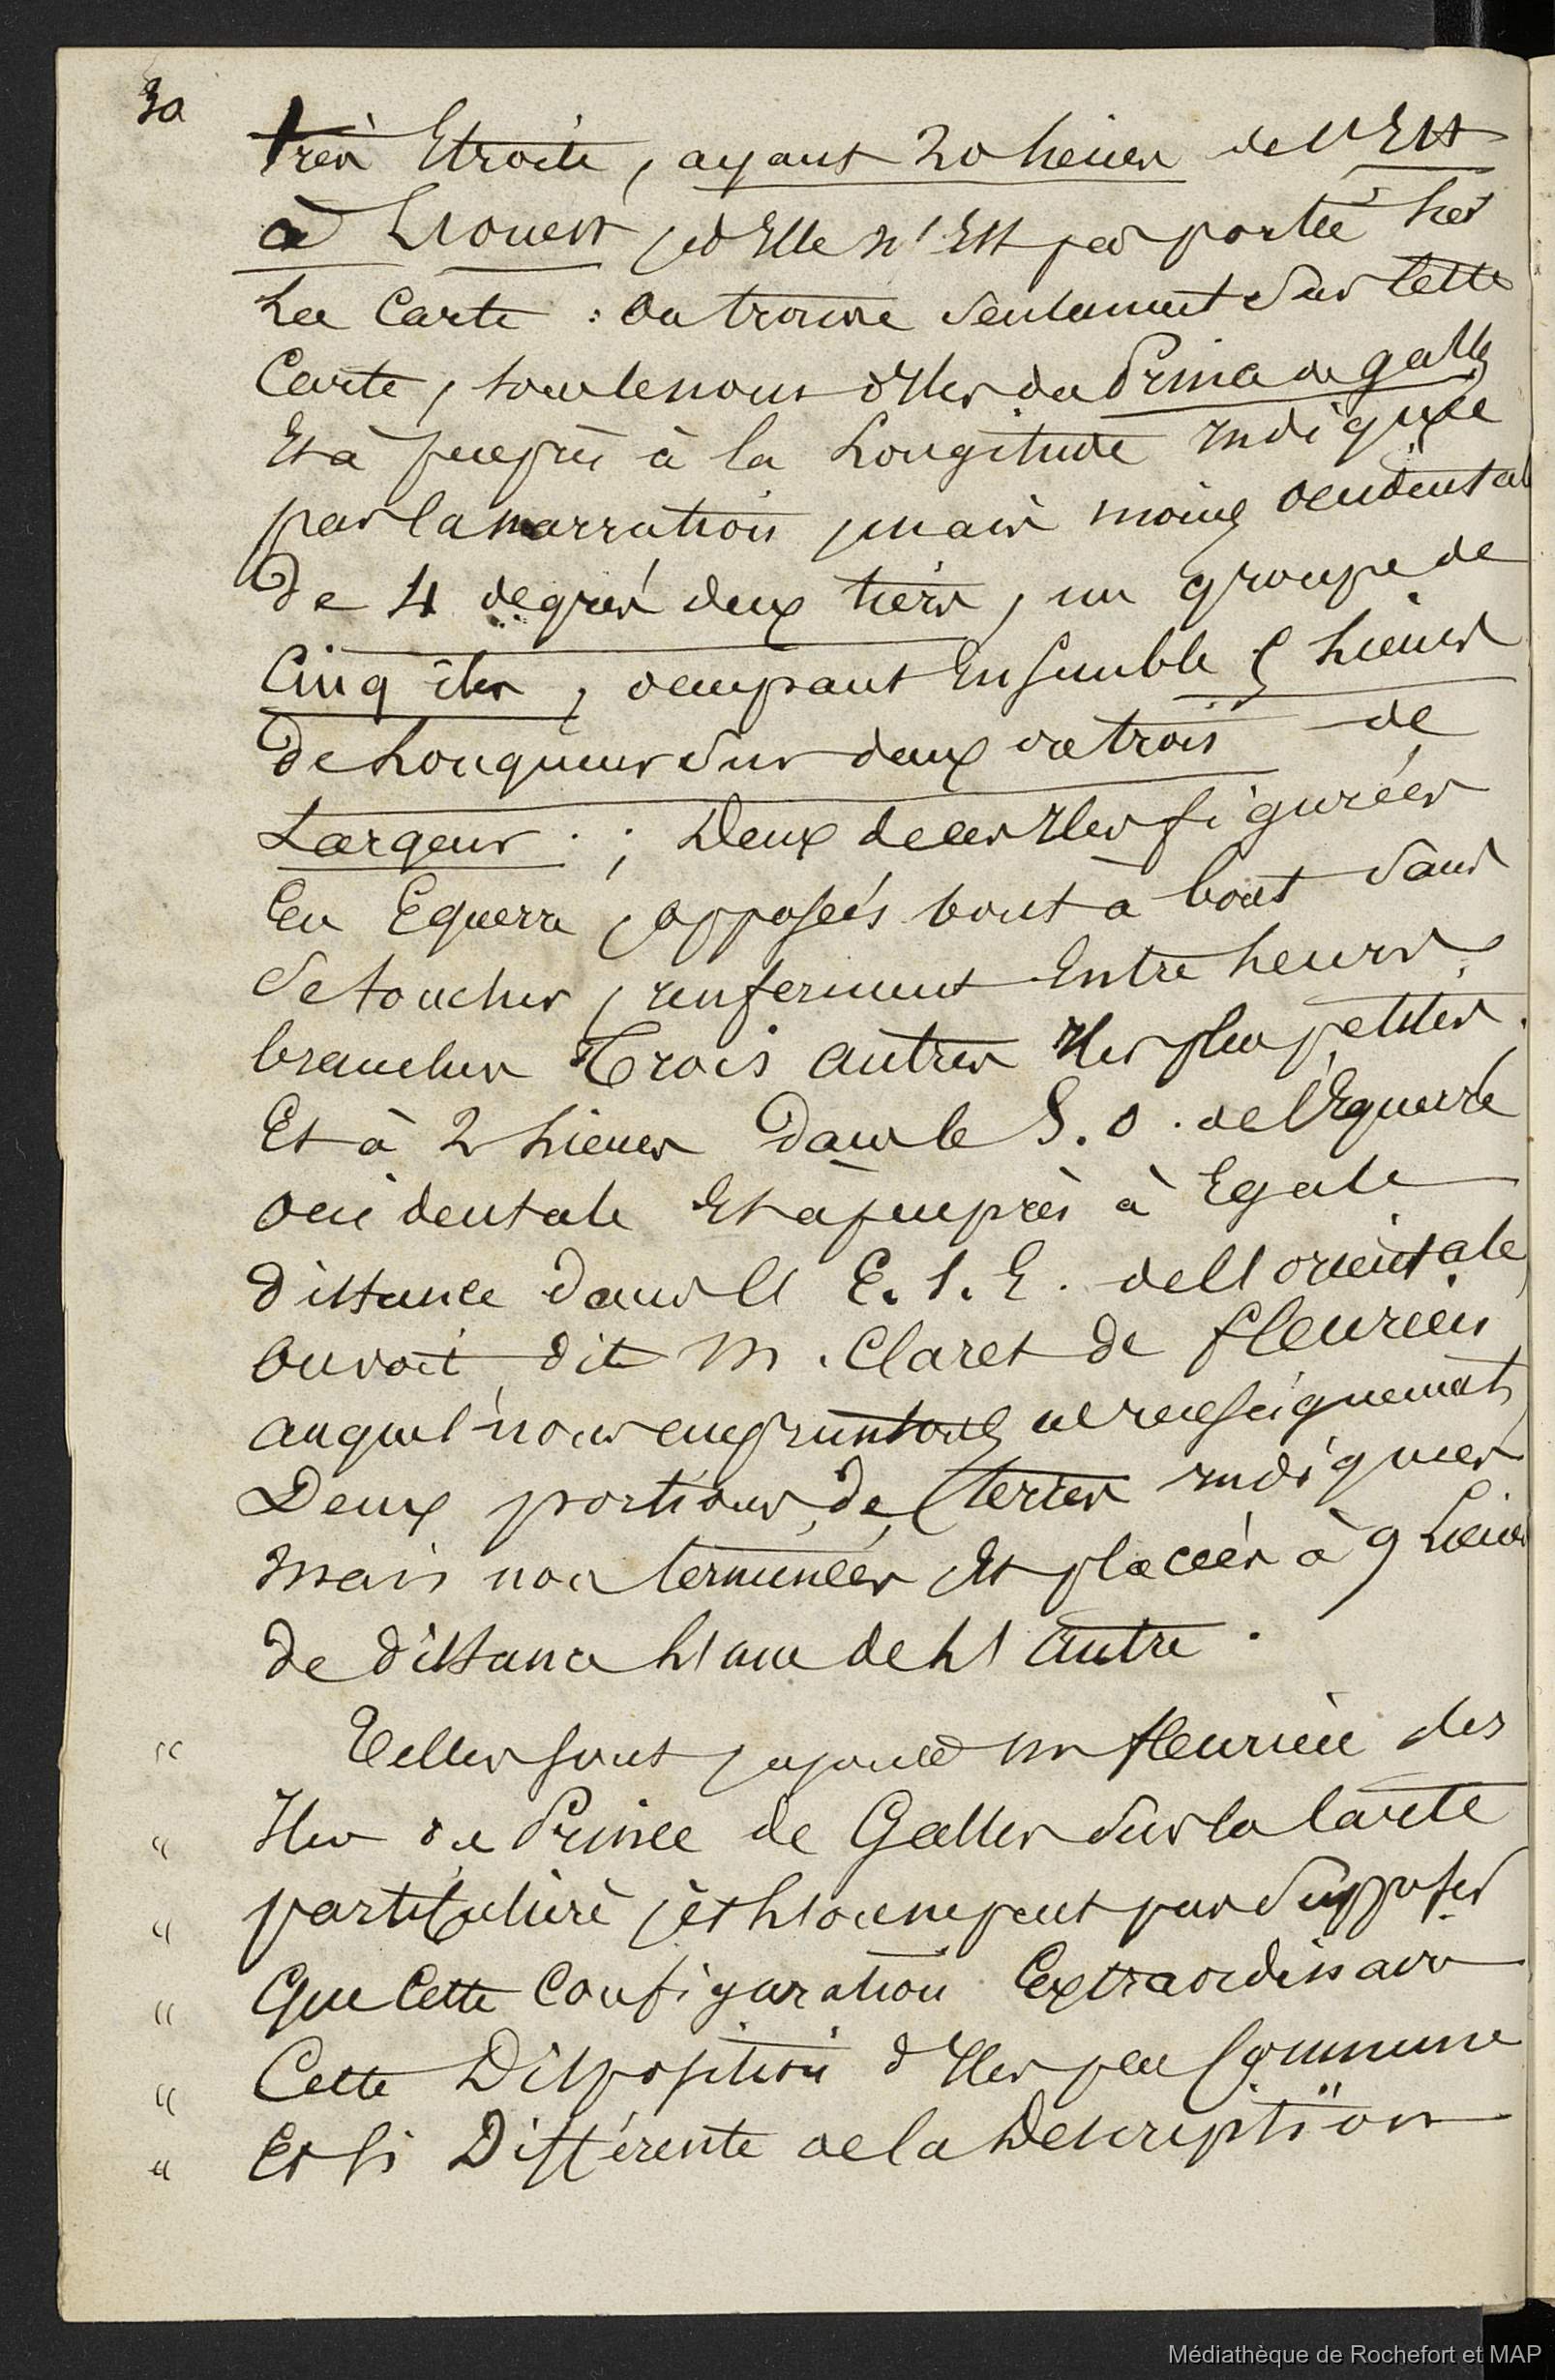 30
très Etroite, ayant 20 lieues de l'Est
à L'ouest, Elle n'Est pas portée
La Carte : on trouve Seulement Sur Cette
Carte, sous le nom d'Iles du Prince de galles
Et à peu près à la Longitude indiquée
par la narration, mais moins occidental
De 4 degrés deux tiers, un groupe de
Cinq îles, occupant Ensemble lieues
De Longueur Sur deux ou trois de
Largeur . ; Deux de ces Iles figurées
En Equerre, opposées bout à bout Sans
Se toucher, renferment Entre Leurs
branches Trois autres Iles plus petites.
Et à 2 Lieues Dans le S. O. de l'Equerre
occidentale Et à peu près à Egale
distance dans l' E. S. E. de l'orientale
on voit, dit M. Claret de fleurieu
auquel nous empruntons ces renseignements
Deux portions de terres indiquées
mais non terminées Et placées à 9 Lieues
de distance L'une de L'autre.
" Telles sont, ajoute Mr fleurieu des
" Iles du Prince de Galles Sur la Carte
" particulière, et L'on ne peut pas Supposer
" Que Cette Configuration Extraordinaire
" Cette Disposition d'Iles peu Commune
" Et si Différente de la Description
Médiathèque de Rochefort et MAP